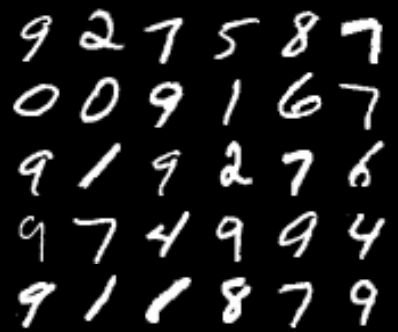 9 2 7 5 8 7
0 0 9 1 6 7
9 1 9 2 7 6
9 7 4 9 9 4
9 1 1 8 7 9